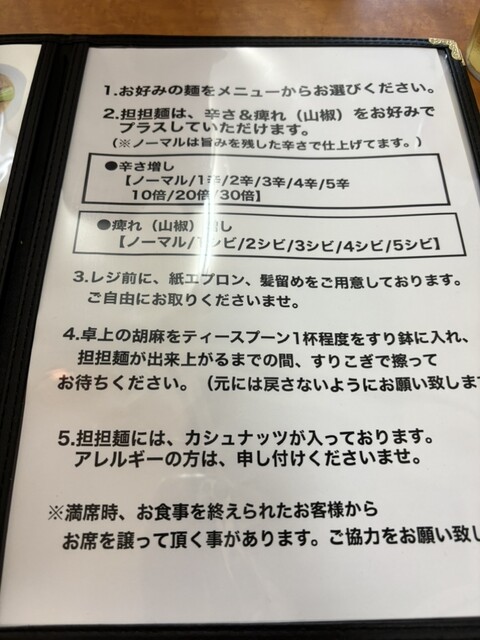 1.お好みの麺をメニューからお選びください。
2.担担麺は、辛さ＆痺れ（山椒）をお好みで
プラスしていただけます。
（※ノーマルは旨みを残した辛さで仕上げてます。）
●辛さ増し
【ノーマル/1辛/2辛/3辛/4辛/5辛
10倍/20倍/30倍】
●痺れ（山椒）増し
【ノーマル/1シビ/2シビ/3シビ/4シビ/5シビ】
3.レジ前に、紙エプロン、髪留めをご用意しております。
ご自由にお取りくださいませ。
4.卓上の胡麻をティースプーン1杯程度をすり鉢に入れ、
担担麺が出来上がるまでの間、すりこぎで擦って
お待ちください。（元には戻さないようにお願い致しま
5.担担麺には、カシュナッツが入っております。
アレルギーの方は、申し付けくださいませ。
※満席時、お食事を終えられたお客様から
お席を譲って頂く事があります。ご協力をお願い致し